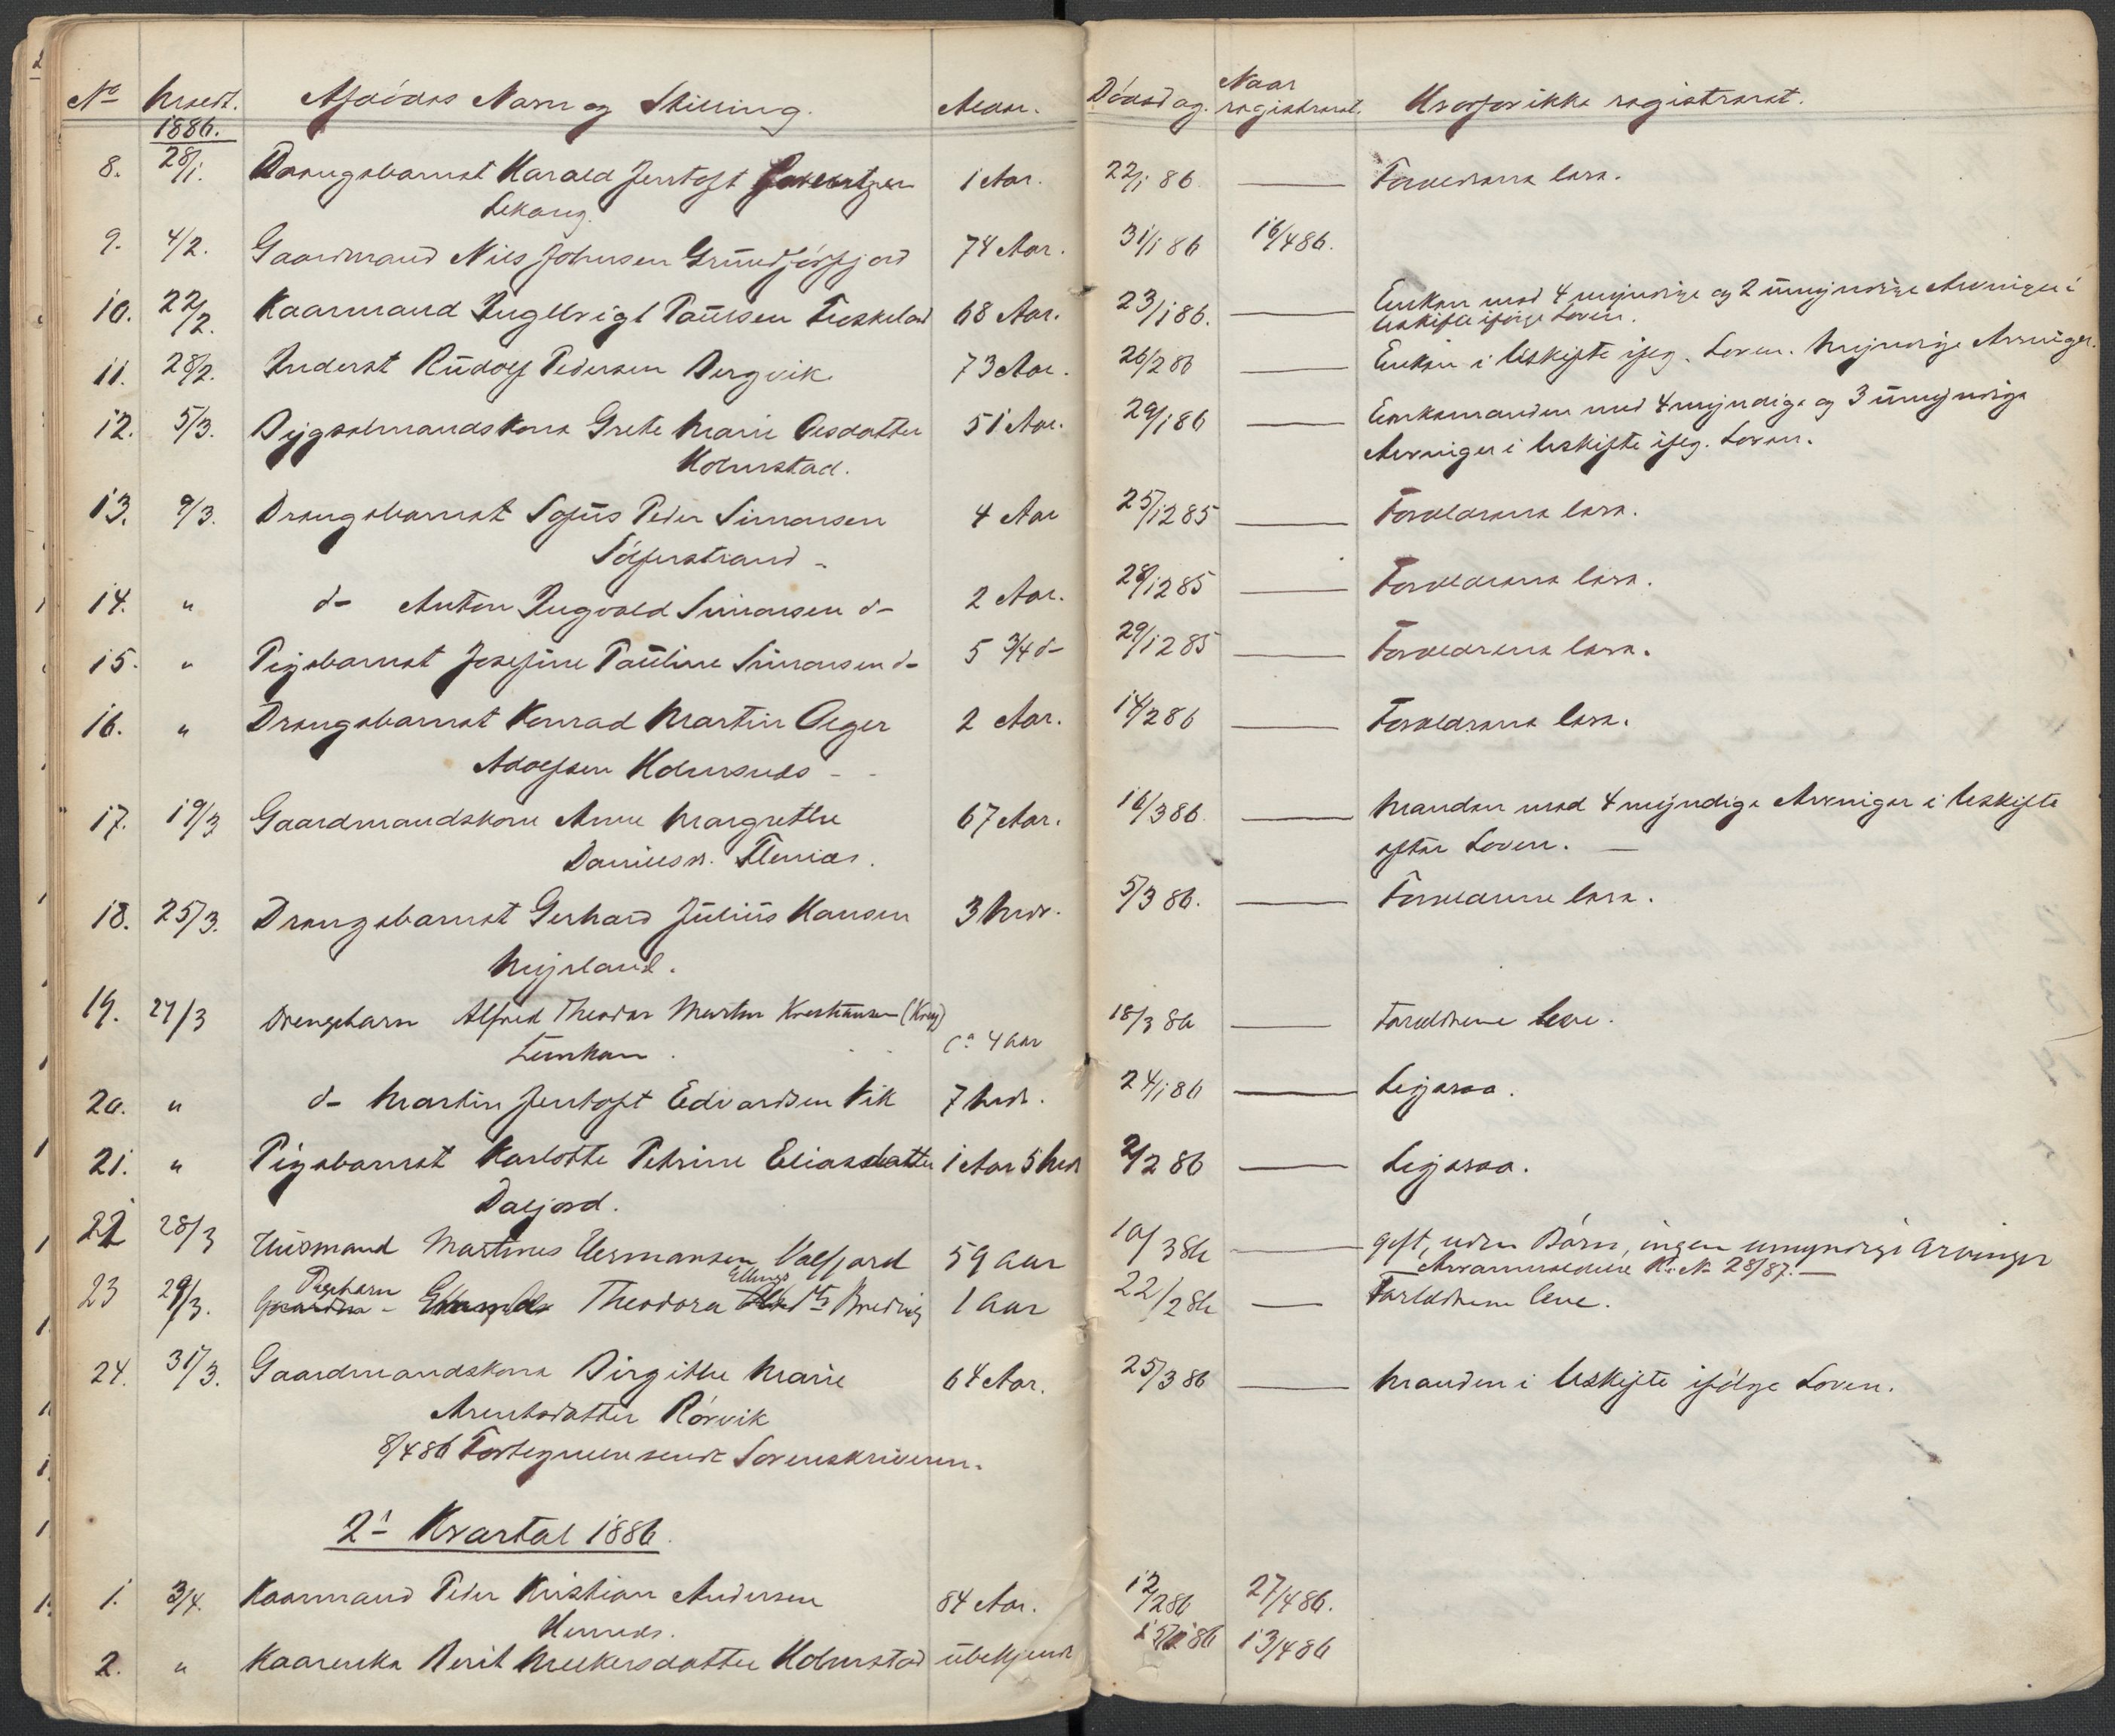 No Meldt. Afdødes Navn og Stilling. Alder. Dødsdag. Naar registreret. Hvorfor ikke registreret.
1886.
8. 28/1. Drengebarnet Harald Jentoft 1 Aar. 22/1 86 — Forældrene leve.
Lekang.
9. 4/2. Gaardmand Nils Johnsen Grundførfjord 74 Aar. 31/1 86 16/4 86.
10. 22/2. Kaarmand Ingebrigt Paulsen 68 Aar. 23/1 86. — Enken med 4 myndige og 2 umyndige Arvinger i
Uskifte ifølge Loven.
11. 28/2. Inderst Rudolf Pedersen Bergvik 73 Aar. 26/2 86 — Enken i Uskifte ifølg. Loven. Myndige Arvinger.
12. 5/3. Bygselmandskone Grete Marie Olsdatter 51 Aar. 29/1 86 — Enkemanden med 4 myndige og 3 umyndige
Holmstad. Arvinger i Uskifte ifølg. Loven.
13. 9/3. Drengebarnet Sofus Peder Simonsen 4 Aar 25/12 85 — Forældrene leve.
Sølferstrand -
14. " d- Anton Ingvald Simonsen d- 2 Aar. 28/12 85 — Forældrene leve.
15. " Pigebarnet Josefine Pauline Simonsen d- 5 3/4 d- 29/12 85 — Forældrene leve.
16. " Drengebarnet Konrad Martin Olger 2 Aar. 14/2 86 — Forældrene leve.
Adolfsen Holmsnes -
17. 19/3 Gaardmandskone Anne Margrethe 67 Aar. 16/3 86. — Manden med 4 myndige Arvinger i Uskifte
Danielsd. Flenies. efter Loven. —
18. 25/3. Drengebarnet Gerhard Julius Hansen 3 Mdr. 5/3 86. — Forældrene leve.
Myrland.
19. 27/3 Drengebarn Alfred Theodor Martin Kristiansen ca 4 aar 18/3 86 — Forældrene leve.
Lunkan.
20. " d- Martin Jentoft Edvardsen Vik 7 Mdr. 24/1 86 — Ligesaa.
21. " Pigebarnet Karlotte Petrine Eliasdatter 1 Aar 5 Mdr 2/2 86 — Ligesaa.
Daljord.
22 28/3 Husmand Martinus Hermansen Valfjord 59 aar 10/3 86 — gift, uden Børn, ingen umyndige Arvinger
Arveanmeldelse R. No 28/87. —
23 29/3. Pigebarn Theodora Ellings Dtr Bredvig 1 aar 22/2 86 — Forældrene leve.
24. 31/3. Gaardmandskone Birgitte Marie 64 Aar. 25/3 86 — Manden i Uskifte ifølge Loven.
Arentsdatter Rørvik
8/4 86 Fortegnelse sendt Sorenskriveren.
2det Kvartal 1886.
1. 3/4. Kaarmand Peder Kristian Andersen 84 Aar. 12/2 86 27/4 86.
Hennes.
2. " Kaarenke Berit Holmstad ubekjendt 13/4 86